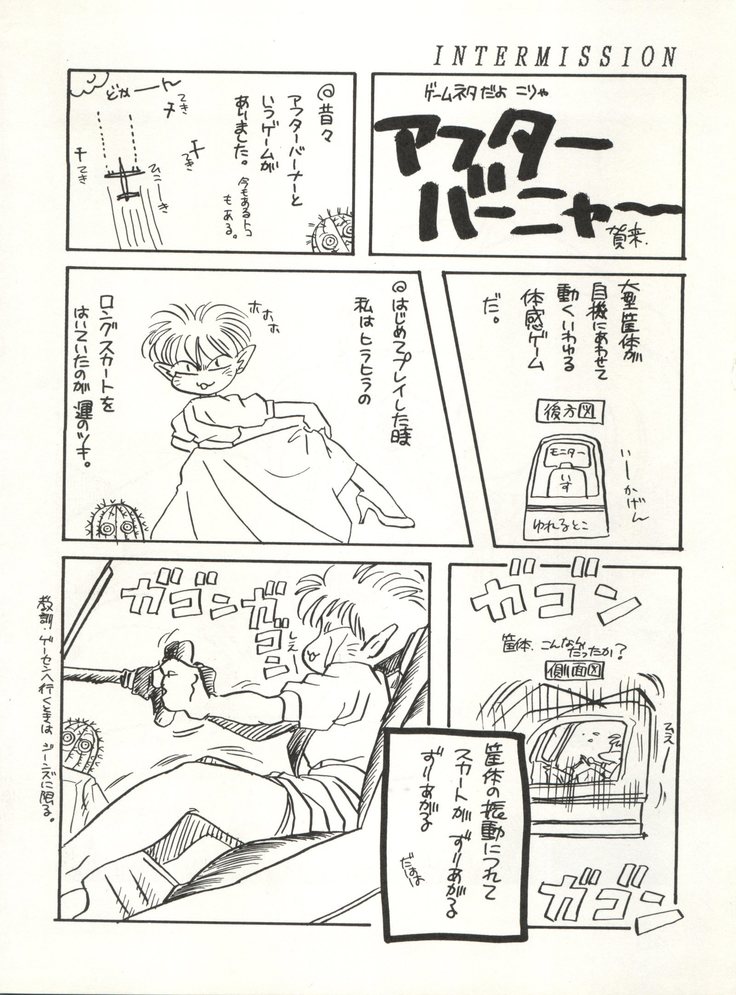 INTERMISSION
ゲームネタだよ こりゃ
アフター
バーニャ〜
賀来.
@昔々
アフターバーナーと
いうゲームが
ありました。
今もあるトコ
もある。
どかーーん
てき
てき
てき
ひこーき
大型筐体が
自機にあわせて
動くいわゆる
体感ゲーム
だ。
後方図
モニター
いす
ゆれるとこ
いーかげん
@はじめてプレイした時
私はヒラヒラの
ホホホ
ロングスカートを
はいていたのが 運のツキ。
ガゴン
筐体、こんなん
だったか?
側面図
ひえー
ガゴン
ガゴン
ガゴン
しえー
筐体の振動につれて
スカートが ずりあがる
ずりあがる
教訓・ゲーセンへ行くときは ジーンズに限る。